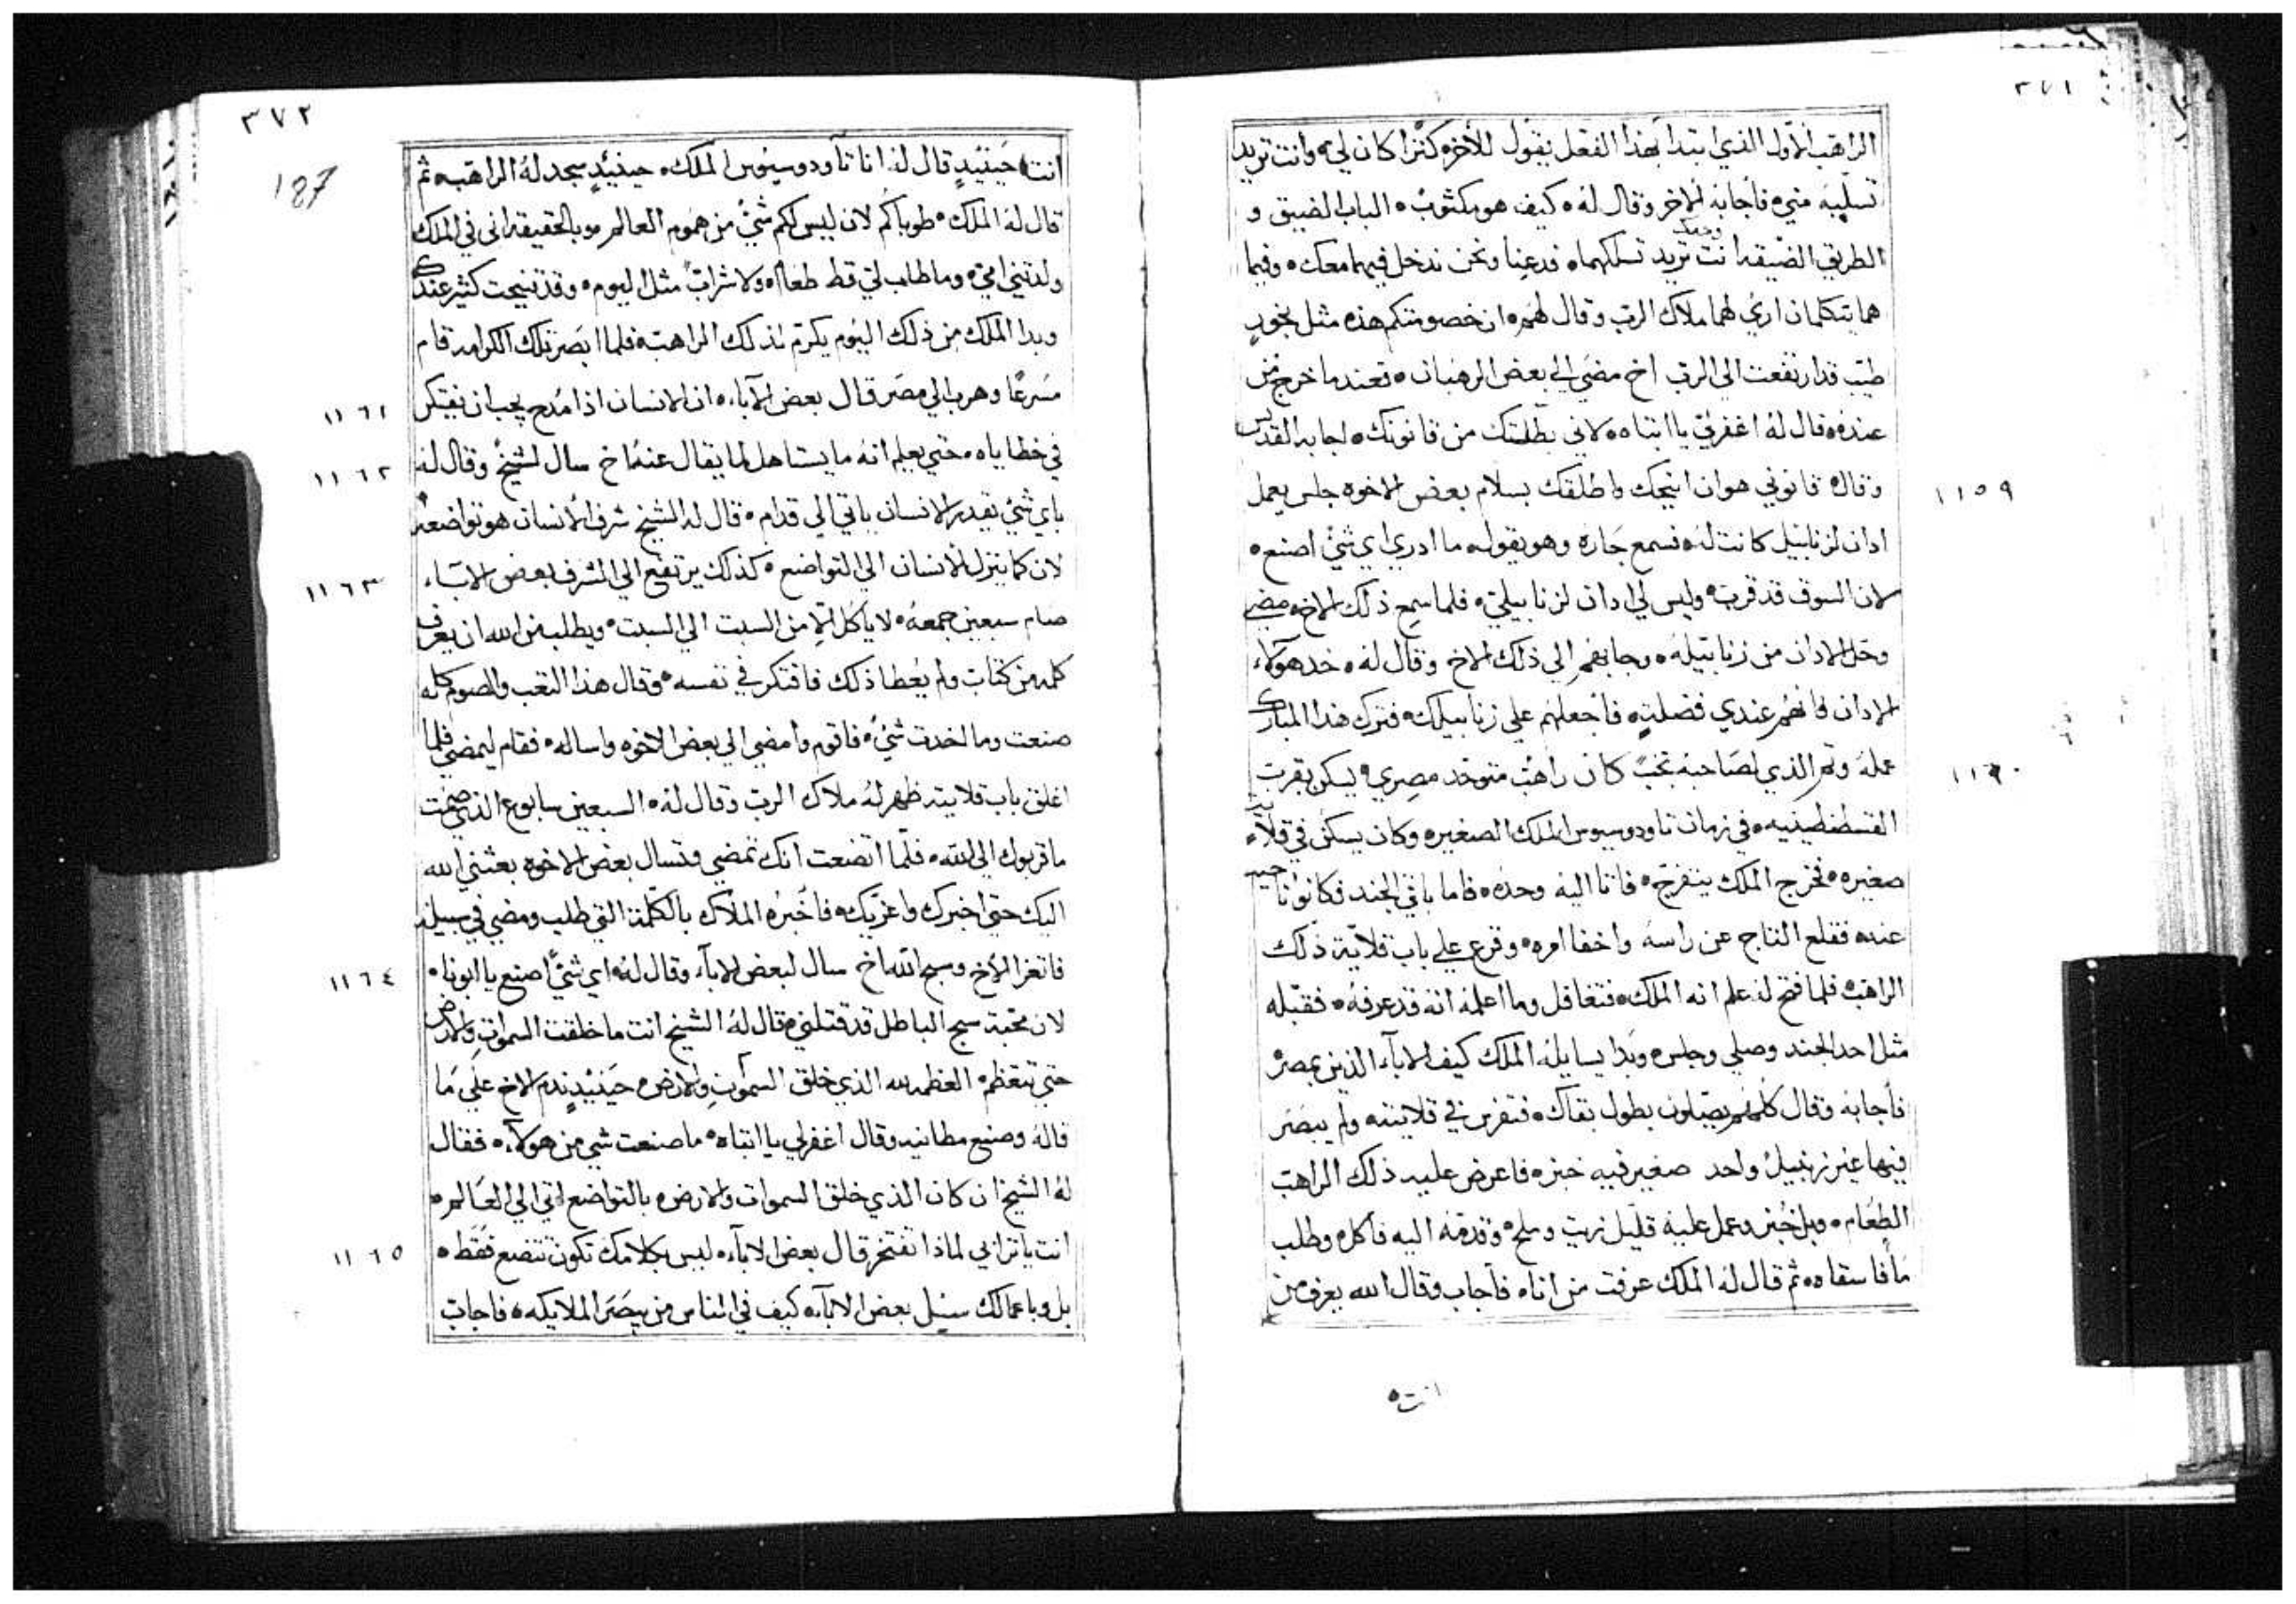 ٣٧١
الراهب الاول الذي ابتدا بهذا الفعل يقول للاخر ه كنزا كان لي ه وانت تريد
تسلبه مني ه فأجابه الاخر وقال له ه كيف هو مكتوب ه الباب الضيق و
الطريق الضيقه انت وحدك تريد تسلكهما ه فدعنا ونحن ندخل فيهما معك ه وفيما
هما يتكلمان اري لهما ملاك الرب وقال لهم ه ان خصومتكم هذه مثل بخور
طيب قد ارتفعت الي الرب اخ مضي الي بعض الرهبان ه فعندما خرج من
عنده ه قال له اغفر لي يا ابتاه ه لاني بطلتك من قانونك ه اجابه القديس
وقال ه قانوني هو ان انيحك واطلقك بسلام بعض الاخوه جلس يعمل
١١٥٩
ادان لزنابيل كانت له ه فسمع جاره وهو يقول ه ما ادري اي شئ اصنع ه
لان السوق قد قرب ه وليس لي ادان لزنابيلي ه فلما سمع ذلك الاخ ه مضي
وحل الادان من زنابيله ه وجابهم الي ذلك الاخ وقال له ه خد هولاء
الادان فانهم عندي فضلت ه فأجعلهم علي زنابيلك ه فترك هذا المبارك
عمله وتمم الذي لصاحبه بمحبه كان راهب متوحد مصري ه يسكن بقرب
١١٦٠
القسطنطينيه ه في زمان تاودوسيوس الملك الصغير ه وكان يسكن في قلايه
صغيره ه فخرج الملك يتفرج ه فاتا اليه وحده ه فاما باقي الجند فكانوا ناحيه
عنه ه فقلع التاج عن راسه واخفا امره ه وقرع علي باب قلاية ذلك
الراهب ه فلما فتح له علم انه الملك ه فتغافل وما اعلمه انه قد عرفه ه فقبله
مثل احد الجند وصلي وجلس ه وبدا يسايله الملك كيف الاباء الذين بمصر ه
فأجابه وقال كلهم يصلون بطول بقاك ه فتفرس في قلايته ولم يبصر
فيها غير زنبيل واحد صغير فيه خبز ه فاعرض عليه ذلك الراهب
الطعام ه وبل خبز وعمل عليه قليل زيت وملح ه وقدمه اليه فأكل ه وطلب
ماً فاسقاه ه ثم قال له الملك عرفت من انا ه فأجاب وقال الله يعرف من
انت ه
٣٧٢
187
انت ه حينيدٍ قال له انا تاودوسيوس الملك ه حينئيدٍ سجد له الراهب ه ثم
قال له الملك ه طوباكم لان ليس لكم شئ من هموم العالم ه وبالحقيقه اني في الملك
ولدتني امي ه وما طاب لي قط طعام ولا شراب مثل اليوم ه وقد تنيحت كثير عندك
وبدا الملك من ذلك اليوم يكرم لذلك الراهب ه فلما ابصر تلك الكرامه قام
مسرعًا وهرب الي مصر قال بعض الآباء ه ان الانسان اذا مُدح يجب ان يفتكر
١١٦١
في خطاياه ه حتي يعلم انه ما يستاهل لما يقال عنه اخ سال لشيخ وقال له
١١٦٢
باي شئ يقدر الانسان ياتي الي قدام ه قال له الشيخ شرف الانسان هو تواضعه
لان كما ينزل الانسان الي التواضع ه كذلك يرتفع الي الشرف بعض الاباء
١١٦٣
صام سبعين جمعه ه لا ياكل الا من السبت الي السبت ه ويطلب من الله ان يعرف
كلمه من كتاب ولم يُعطا ذلك فافتكر في نفسه ه وقال هذا التعب والصوم كله
صنعت وما اخدت شئ ه فاقوم وأمضي الي بعض الاخوه واساله ه فقام ليمضي فلما
اغلق باب قلايته ظهر له ملاك الرب وقال له ه السبعين سابوع الذي صُمت
ما قربوك الي الله ه فلما اتضعت انك تمضي وتسال بعض الاخوه بعثني الله
اليك حتي اخبرك واعزيك ه فأخبره الملاك بالكلمه التي طلب ومضي في سبيله
فاتعزا الاخ وسبح الله اخ سال لبعض الاباء وقال له ه اي شئ اصنع يا ابونا ه
١١٦٤
لان محبة سبح الباطل قد قتلني ه قال له الشيخ انت ما خلقت السموات والارض
حتي تتعظم ه العظمه لله الذي خلق السموات والارض ه حينيدٍ ندم الاخ علي ما
قاله وصنع مطانيه وقال اغفر لي يا ابتاه ه ما صنعت شي من هولاء ه فقال
له الشيخ ان كان الذي خلق السموات والارض ه بالتواضع اتي الي العالم ه
انت يا ترابي لماذا تفتخر قال بعض الاباء ه ليس بكلامك تكون تتضع فقط ه
١١٦٥
بل وباعمالك سيل بعض الاباء ه كيف في الناس من يبصر الملايكه ه فاجاب